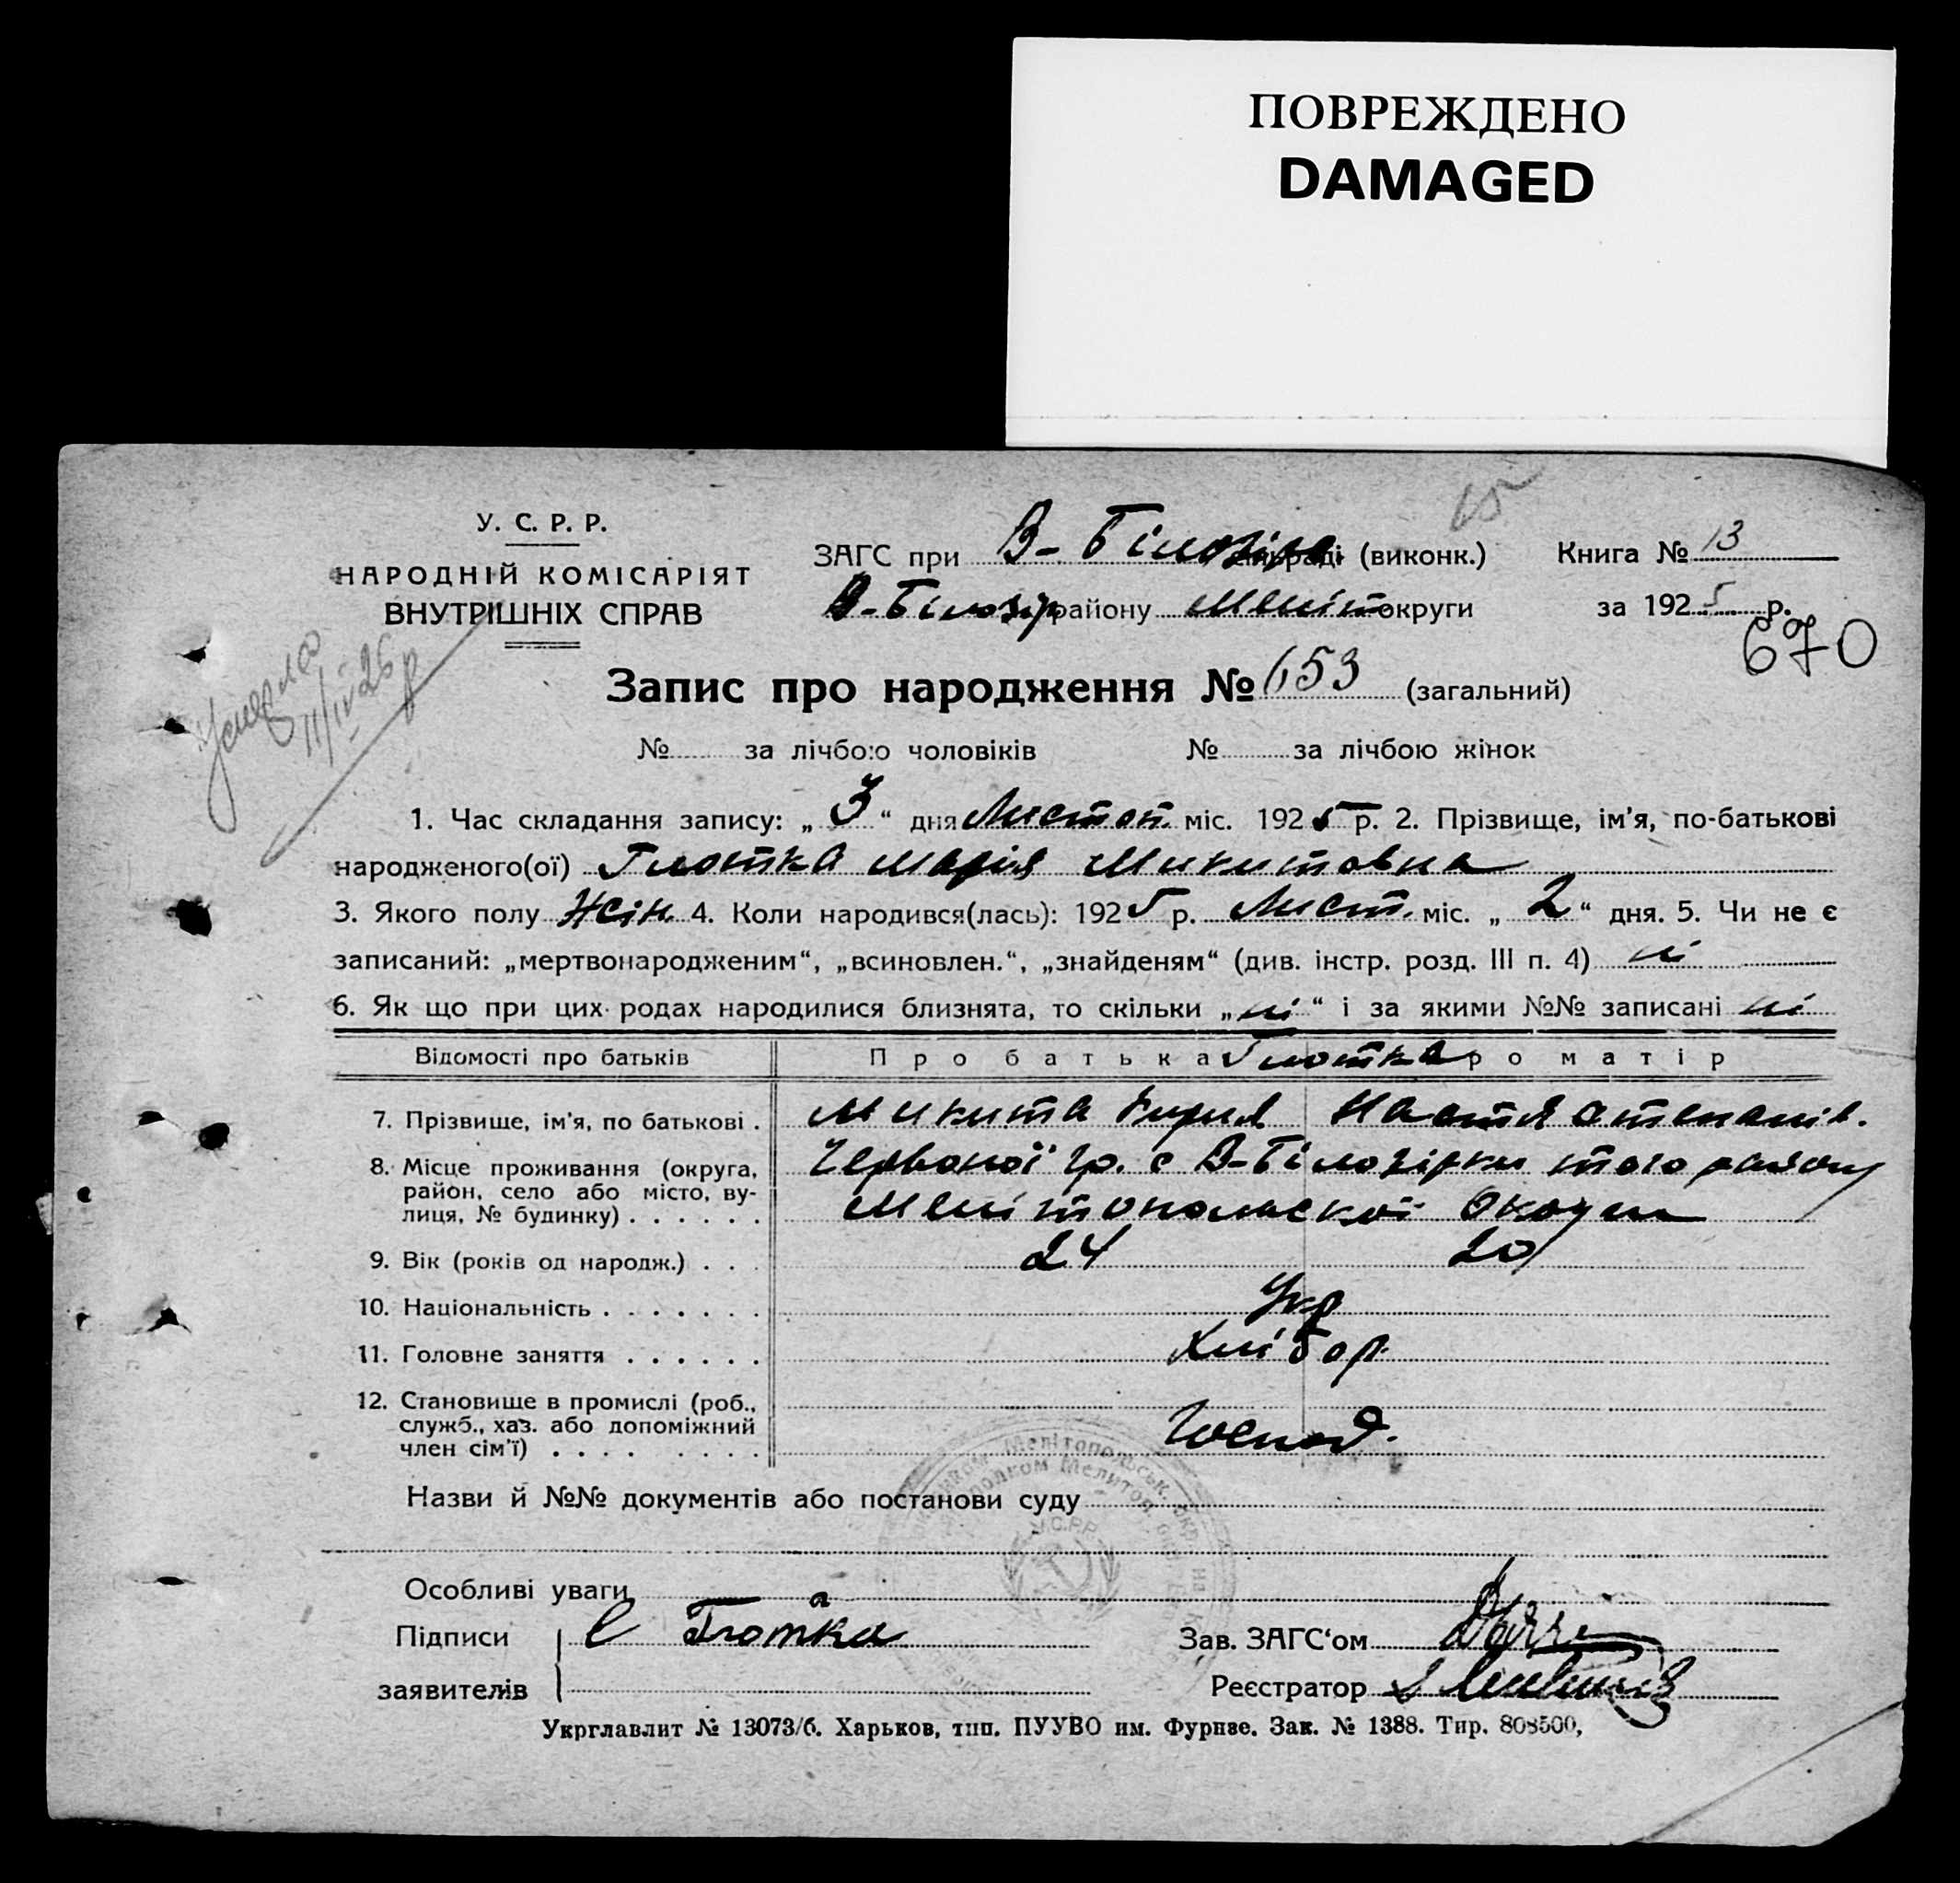 ПОВРЕЖДЕНО
DAMAGED
У. С. Р. Р.
НАРОДНІЙ КОМІСАРІЯТ
ВНУТРІШНІХ СПРАВ
ЗАГС при В-Білозір. (виконк.) Книга № 13
В-Білозір району Меліт округи за 1925 р.
670
Умерла
11/IV 26 р
Запис про народження № 653 (загальний)
№ за лічбою чоловіків № за лічбою жінок
1. Час складання запису: „3“ дня Листоп. міс. 1925 р. 2. Прізвище, ім'я, по-батькові
народженого(ої) Глотка Марія Микитовна
3. Якого полу Жін. 4. Коли народився(лась): 1925 р. Лист. міс. „2“ дня. 5. Чи не є
записаний: „мертвонародженим“, „всиновлен.“, „знайденям“ (див. інстр. розд. III п. 4) ні
6. Як що при цих родах народилися близнята, то скільки „ні“ і за якими №№ записані ні
Відомості про батьків Про батька Глотка Про матір
7. Прізвище, ім'я, по батькові . Микита Кирил Настя Степанів.
8. Місце проживання (округа, район, село або місто, вулиця, № будинку) . . . . . . Червоної гр. с В-Білозірки того району
Мелітопольскої Округи
9. Вік (років од народж.) . . . 24 20
10. Національність . . . . . . . Укр
11. Головне заняття . . . . . . Хлібор.
12. Становище в промислі (роб., служб., хаз. або допоміжний член сім'ї) . . . . . . . . Господ.
Назви й №№ документів або постанови суду
У.С.Р.Р.
Особливі уваги
Підписи С Глотка Зав. ЗАГС‘ом
заявителів Реєстратор
Укрглавлит № 13073/б. Харьков, тип. ПУУВО им. Фрунзе. Зак. № 1388. Тир. 808500,